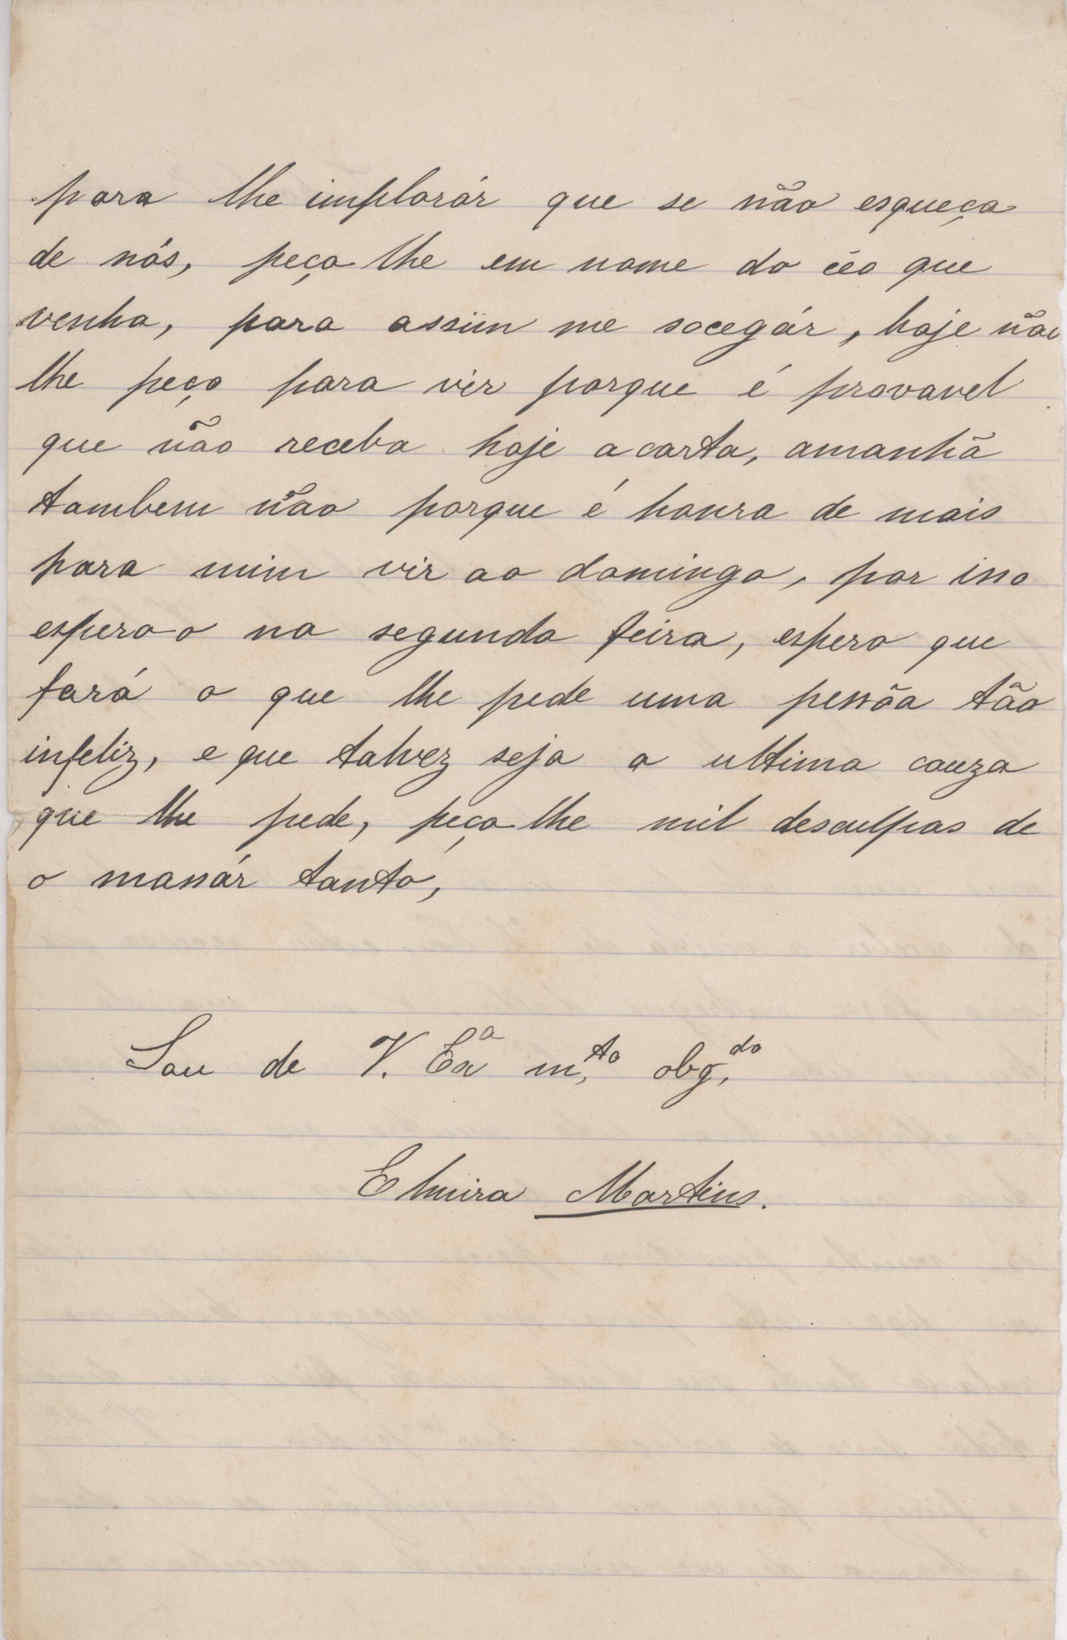 para lhe implorár que se não esqueça
de nós, peço lhe em nome do céo que
venha, para assim me socegár, hoje não
lhe peço para vir porque é provavel
que não receba hoje a carta, amanhã
tambem não porque é honra de mais
para mim vir ao domingo, por isso
espero-o na segunda feira, espero que
fará o que lhe pede uma pessõa tão
infeliz, e que talvez seja a ultima couza
que lhe pede, peço lhe mil desculpas de
o massár tanto,
Sou de V. Exª m.to obg.do
Elmira Martins.